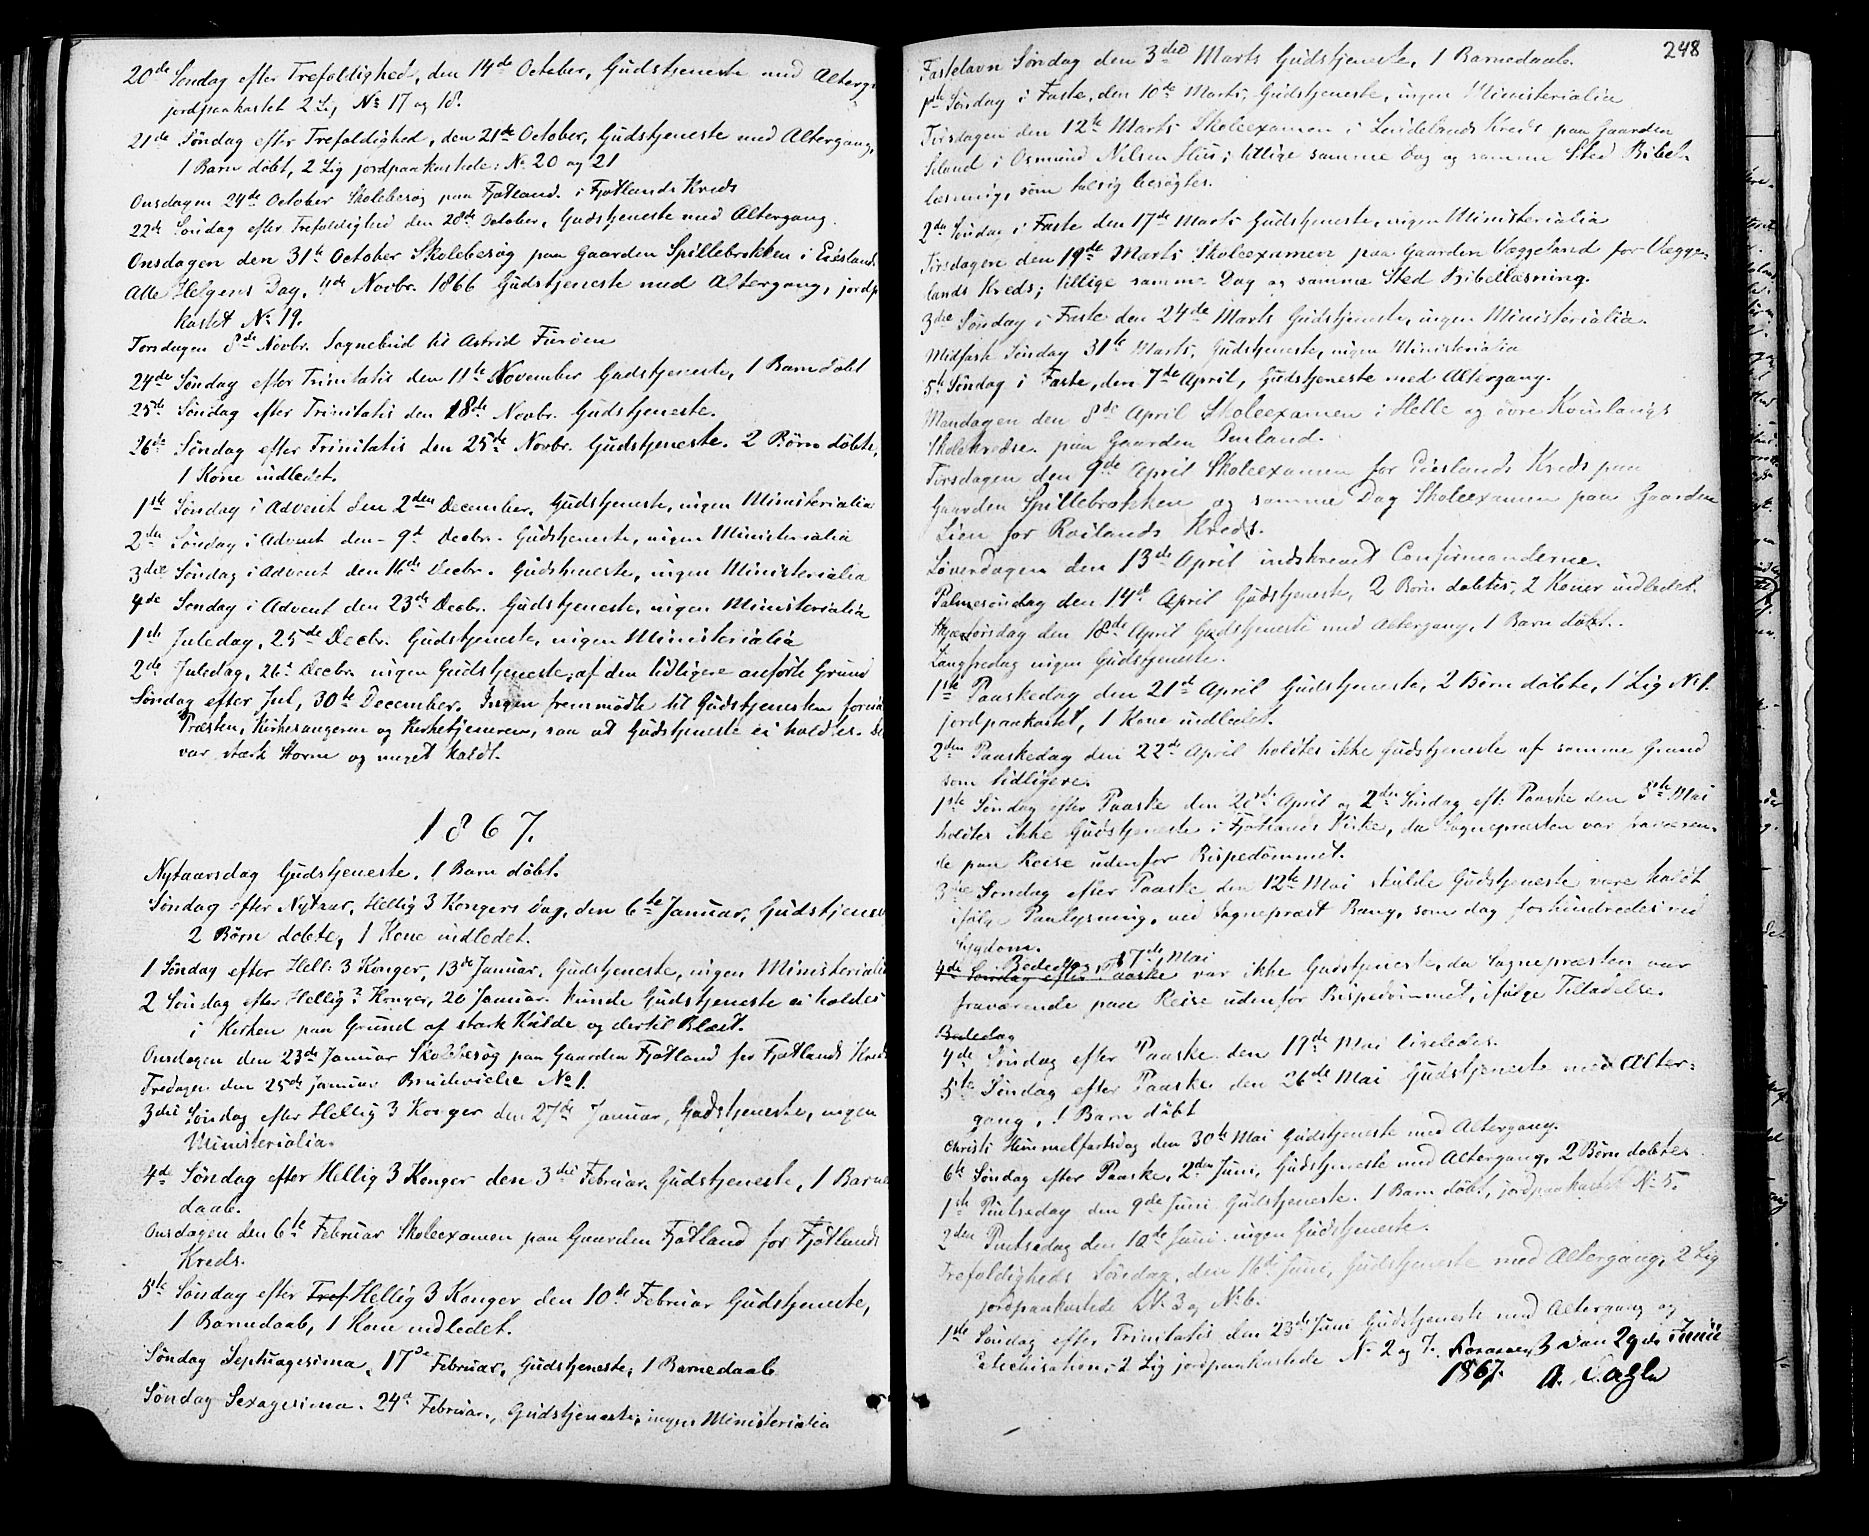 20de Søndag efter Trefoldighed, den 14de October, Gudstjeneste med Alterg
jordpaakastet 2 Lig No 17 og 18.
21de Søndag efter Trefoldighed, den 21de October, Gudstjeneste med Altergang,
1 Barn döbt, 2 Lig jordpaakastede: No 20 og 21
Onsdagen 24de October Skolebesøg paa Fjotland i Fjotlands Kreds
22de Søndag efter Trefoldighed den 28de October, Gudstjeneste med Altergang.
Onsdagen den 31te October Skolebesøg paa Gaarden Spillebrokken i Eieslands
Alle Helgens Dag, 4de Novbr. 1866 Gudstjeneste med Altergang, jordp
kastet No 19.
Torsdagen 8de Novbr. Sognebud til Astrid
24de Søndag efter Trinitatis den 11te November Gudstjeneste, 1 Barn döbt
25de Søndag efter Trinitatis den 18de Novbr. Gudstjeneste.
26de Søndag efter Trinitatis den 25de Novbr. Gudstjeneste. 2 Börn döbte,
1 Kone indledet.
1ste Søndag i Advent den 2den December. Gudstjeneste, ingen Ministerialia
2den Søndag i Advent den 9d Decbr. Gudstjeneste, ingen Ministerialia
3die Søndag i Advent den 16de Decbr. Gudstjeneste, ingen Ministerialia
4de Søndag i Advent den 23de Decbr. Gudstjeneste, ingen Ministerialia
1ste Juledag, 25de Decbr. Gudstjeneste, ingen Ministerialia
2de Juledag, 26d Decbr. ingen Gudstjeneste, af den tidligere anförte Grund
Søndag efter Jul, 30te December. Ingen fremmödte til Gudstjenesten foruden
Præsten, Kirkesangeren og Kirketjeneren, saa at Gudstjeneste ei holdtes. De
var stærk Storm og meget Koldt.
1867.
Nytaarsdag Gudstjeneste, 1 Barn döbt.
Søndag efter Nytaar, Hellig 3 Kongers Dag, den 6te Januar, Gudstjenes
2 Börn döbte, 1 Kone indledet.
1 Søndag efter Hell: 3 Konger, 13de Januar, Gudstjeneste, ingen Ministerialia
2 Søndag efter Hellig 3 Konger, 20 Januar. kunde Gudstjeneste ei holdes
i Kirken paa Grund af stærk Kulde og dertil Blæst.
Onsdagen den 23de Januar Skolebesøg paa Gaarden Fjotland for Fjotlands Kreds
Fredagen den 25de Januar Brudevielse No 1.
3die Søndag efter Hellig 3 Konger den 27de Januar, Gudstjeneste, ingen
Ministerialia.
4de Søndag efter Hellig 3 Konger den 3die Februar, Gudstjeneste, 1 Barne
daab.
Onsdagen den 6te Februar Skoleexamen paa Gaarden Fjotland for Fjotlands
Kreds.
5te Søndag efter Tref Hellig 3 Konger den 10de Februar Gudstjeneste,
1 Barnedaab, 1 Kone indledet.
Søndag Septuagesima, 17de Februar, Gudstjeneste, 1 Barnedaab
Søndag Sexagesima. 24d Februar, Gudstjeneste, ingen Ministerialia
248
Fastelavn Søndag den 3die Marts Gudstjeneste, 1 Barnedaab.
1ste Søndag i Faste, den 10de Marts, Gudstjeneste, ingen Ministerialia
Tirsdagen den 12te Marts Skoleexamen i Kreds paa Gaarden
i Osmund Nilsen Huus; tillige samme Dag og samme Sted Bibel-
læsning, som talrig besøgtes.
2den Søndag i Faste den 17de Marts Gudstjeneste, ingen Ministerialia
Tirsdagen den 19de Marts Skoleexamen paa Gaarden Væggeland for Vægge-
lands Kreds; tillige samme Dag og samme Sted Bibellæsning.
3die Søndag i Faste den 24de Marts Gudstjeneste, ingen Ministerialia.
Midfaste Søndag 31te Marts, Gudstjeneste, ingen Ministerialia
5te Søndag i Faste, den 7de April, Gudstjeneste med Altergang.
Mandagen den 8de April Skoleexamen i Helle og övre Kvinlaugs
Skolekredse paa Gaarden
Tirsdagen den 9de April Skoleexamen for Eieslands Kreds paa
Gaarden Spillebrokken og samme Dag Skoleexamen paa Gaarden
Lien for Roilands Kreds.
Löverdagen den 13de April indskrevet Confirmanderne.
Palmesøndag den 14de April Gudstjeneste, 2 Börn döbtes, 2 Koner indledet.
Skjærtorsdag den 18de April Gudstjeneste med Altergang, 1 Barn döbt.
Langfredag ingen Gudstjeneste.
1ste Paaskedag den 21de April Gudstjeneste, 2 Börn döbte, 1 Lig No 1.
jordpaakastet, 1 Kone indledet.
2den Paaskedag den 22de April holdtes ikke Gudstjeneste af samme Grund
som tidligere.
1ste Søndag efter Paaske den 28de April og 2den Søndag eft: Paaske den 5te Mai
holdtes ikke Gudstjeneste i Fjotlands Kirke, da Sognepræsten var fraværen-
de paa Reise udenfor Bispedömmet.
3die Søndag efter Paaske den 12te Mai skulde Gudstjeneste være holdt
ifölge Paalysning, ved Sognepræst Bang, som dog forhindredes ved
Sygdom.
Bededag 17de Mai
4de Søndag efter Paaske var ikke Gudstjeneste, da Sognepræsten var
fraværende paa Reise udenfor Bispedömmet, ifölge Tilladelse.
Bededag
4de Søndag efter Paaske den 19de Mai ligeledes.
5te Søndag efter Paaske den 26de Mai Gudstjeneste med Alter-
gang, 1 Barn döbt
Christi Himmelfartsdag den 30te Mai Gudstjeneste med Altergang.
6te Søndag efter Paaske, 2den Juni, Gudstjeneste med Altergang, 2 Börn döbtes
1ste Pintsedag den 9de Juni Gudstjeneste. 1 Barn döbt, jordpaakastet No 5.
2den Pintsedag den 10de Juni ingen Gudstjeneste.
Trefoldigheds Søndag, den 16de Juni, Gudstjeneste med Altergang, 2 Lig
jordpaakastede No 3 og No 6.
1ste Søndag efter Trinitatis den 23de Juni Gudstjeneste med Altergang og
Catechisation, 2 Lig jordpaakastede No 2 og 7. den 29de Junii
1867.